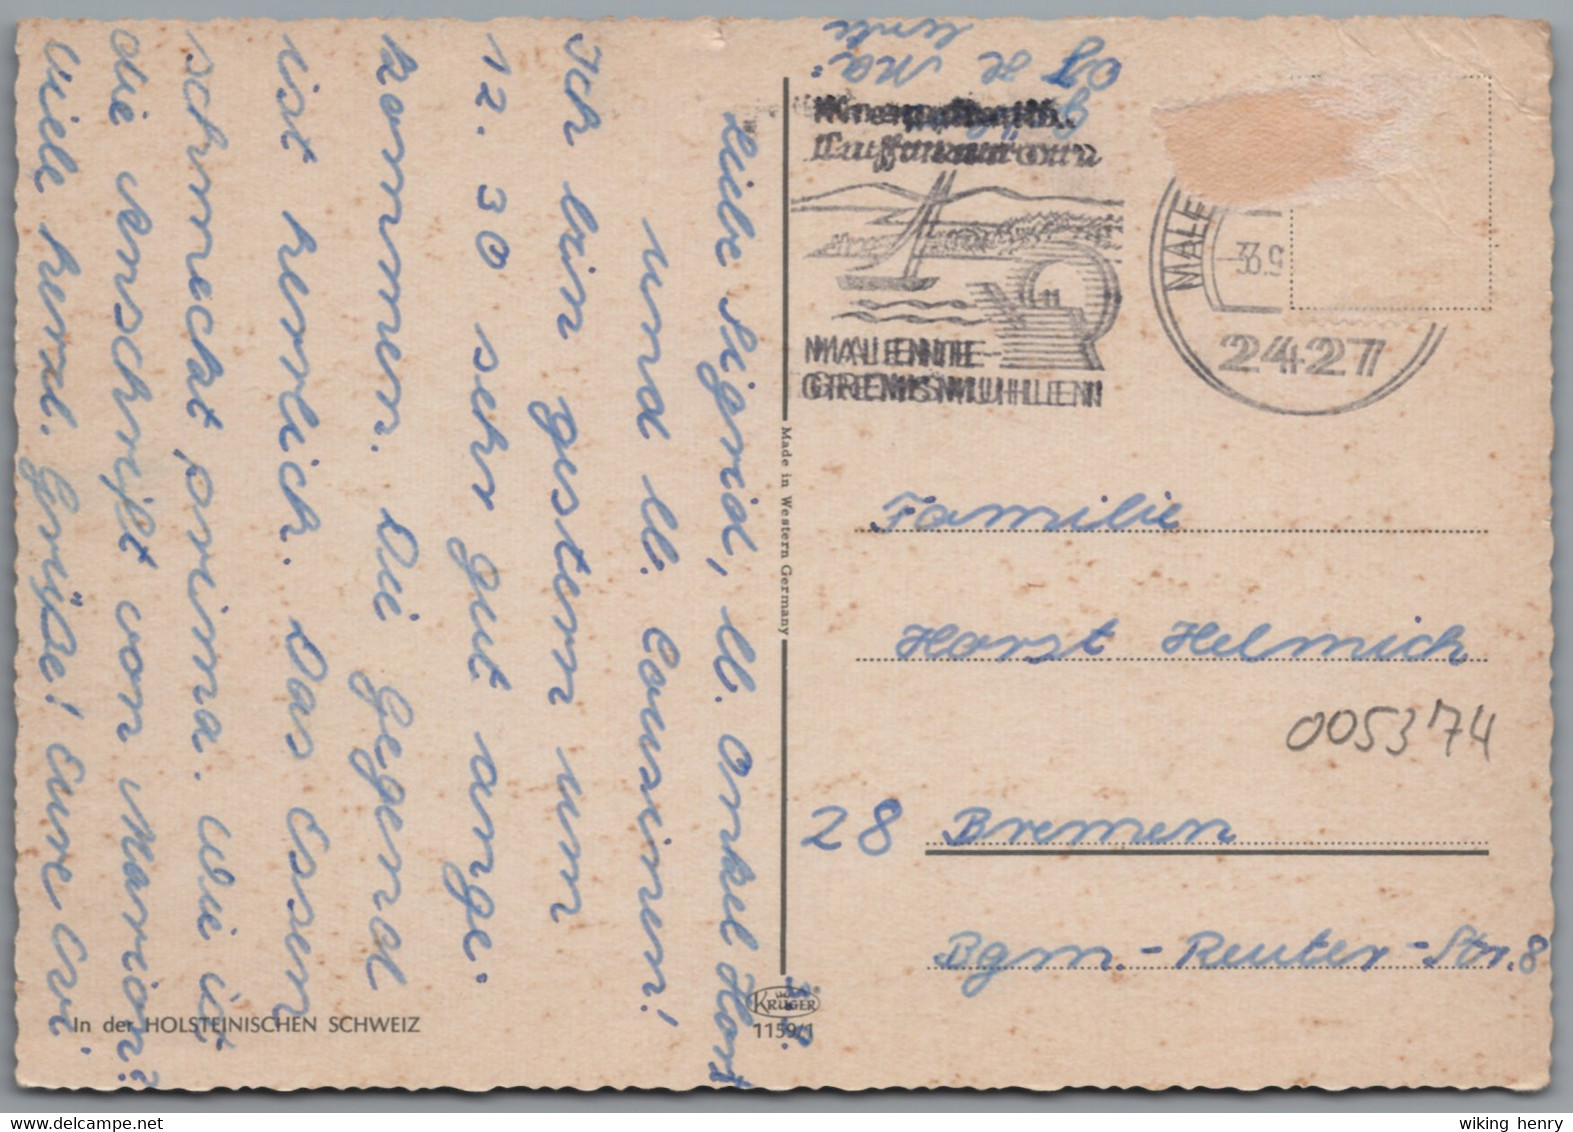 Liebe Sigrid, lb. Onkel Horst
und lb. Cousinen!
Ich bin gestern um
12.30 sehr gut ange-
kommen. Die Gegend
ist herrlich. Das Essen
schmeckt prima. Wie ist
die Anschrift von Marion?
Viele herzl. Grüße! Eure Evi
In der HOLSTEINISCHEN SCHWEIZ
Made in Western Germany
KRÜGER
1159/1
Luftkurort
MALENTE-
GREMSMÜHLEN
MALE
2427
Familie
Horst Helmich
005374
28 Bremen
Bgm.-Reuter-Str. 8
wiking henry